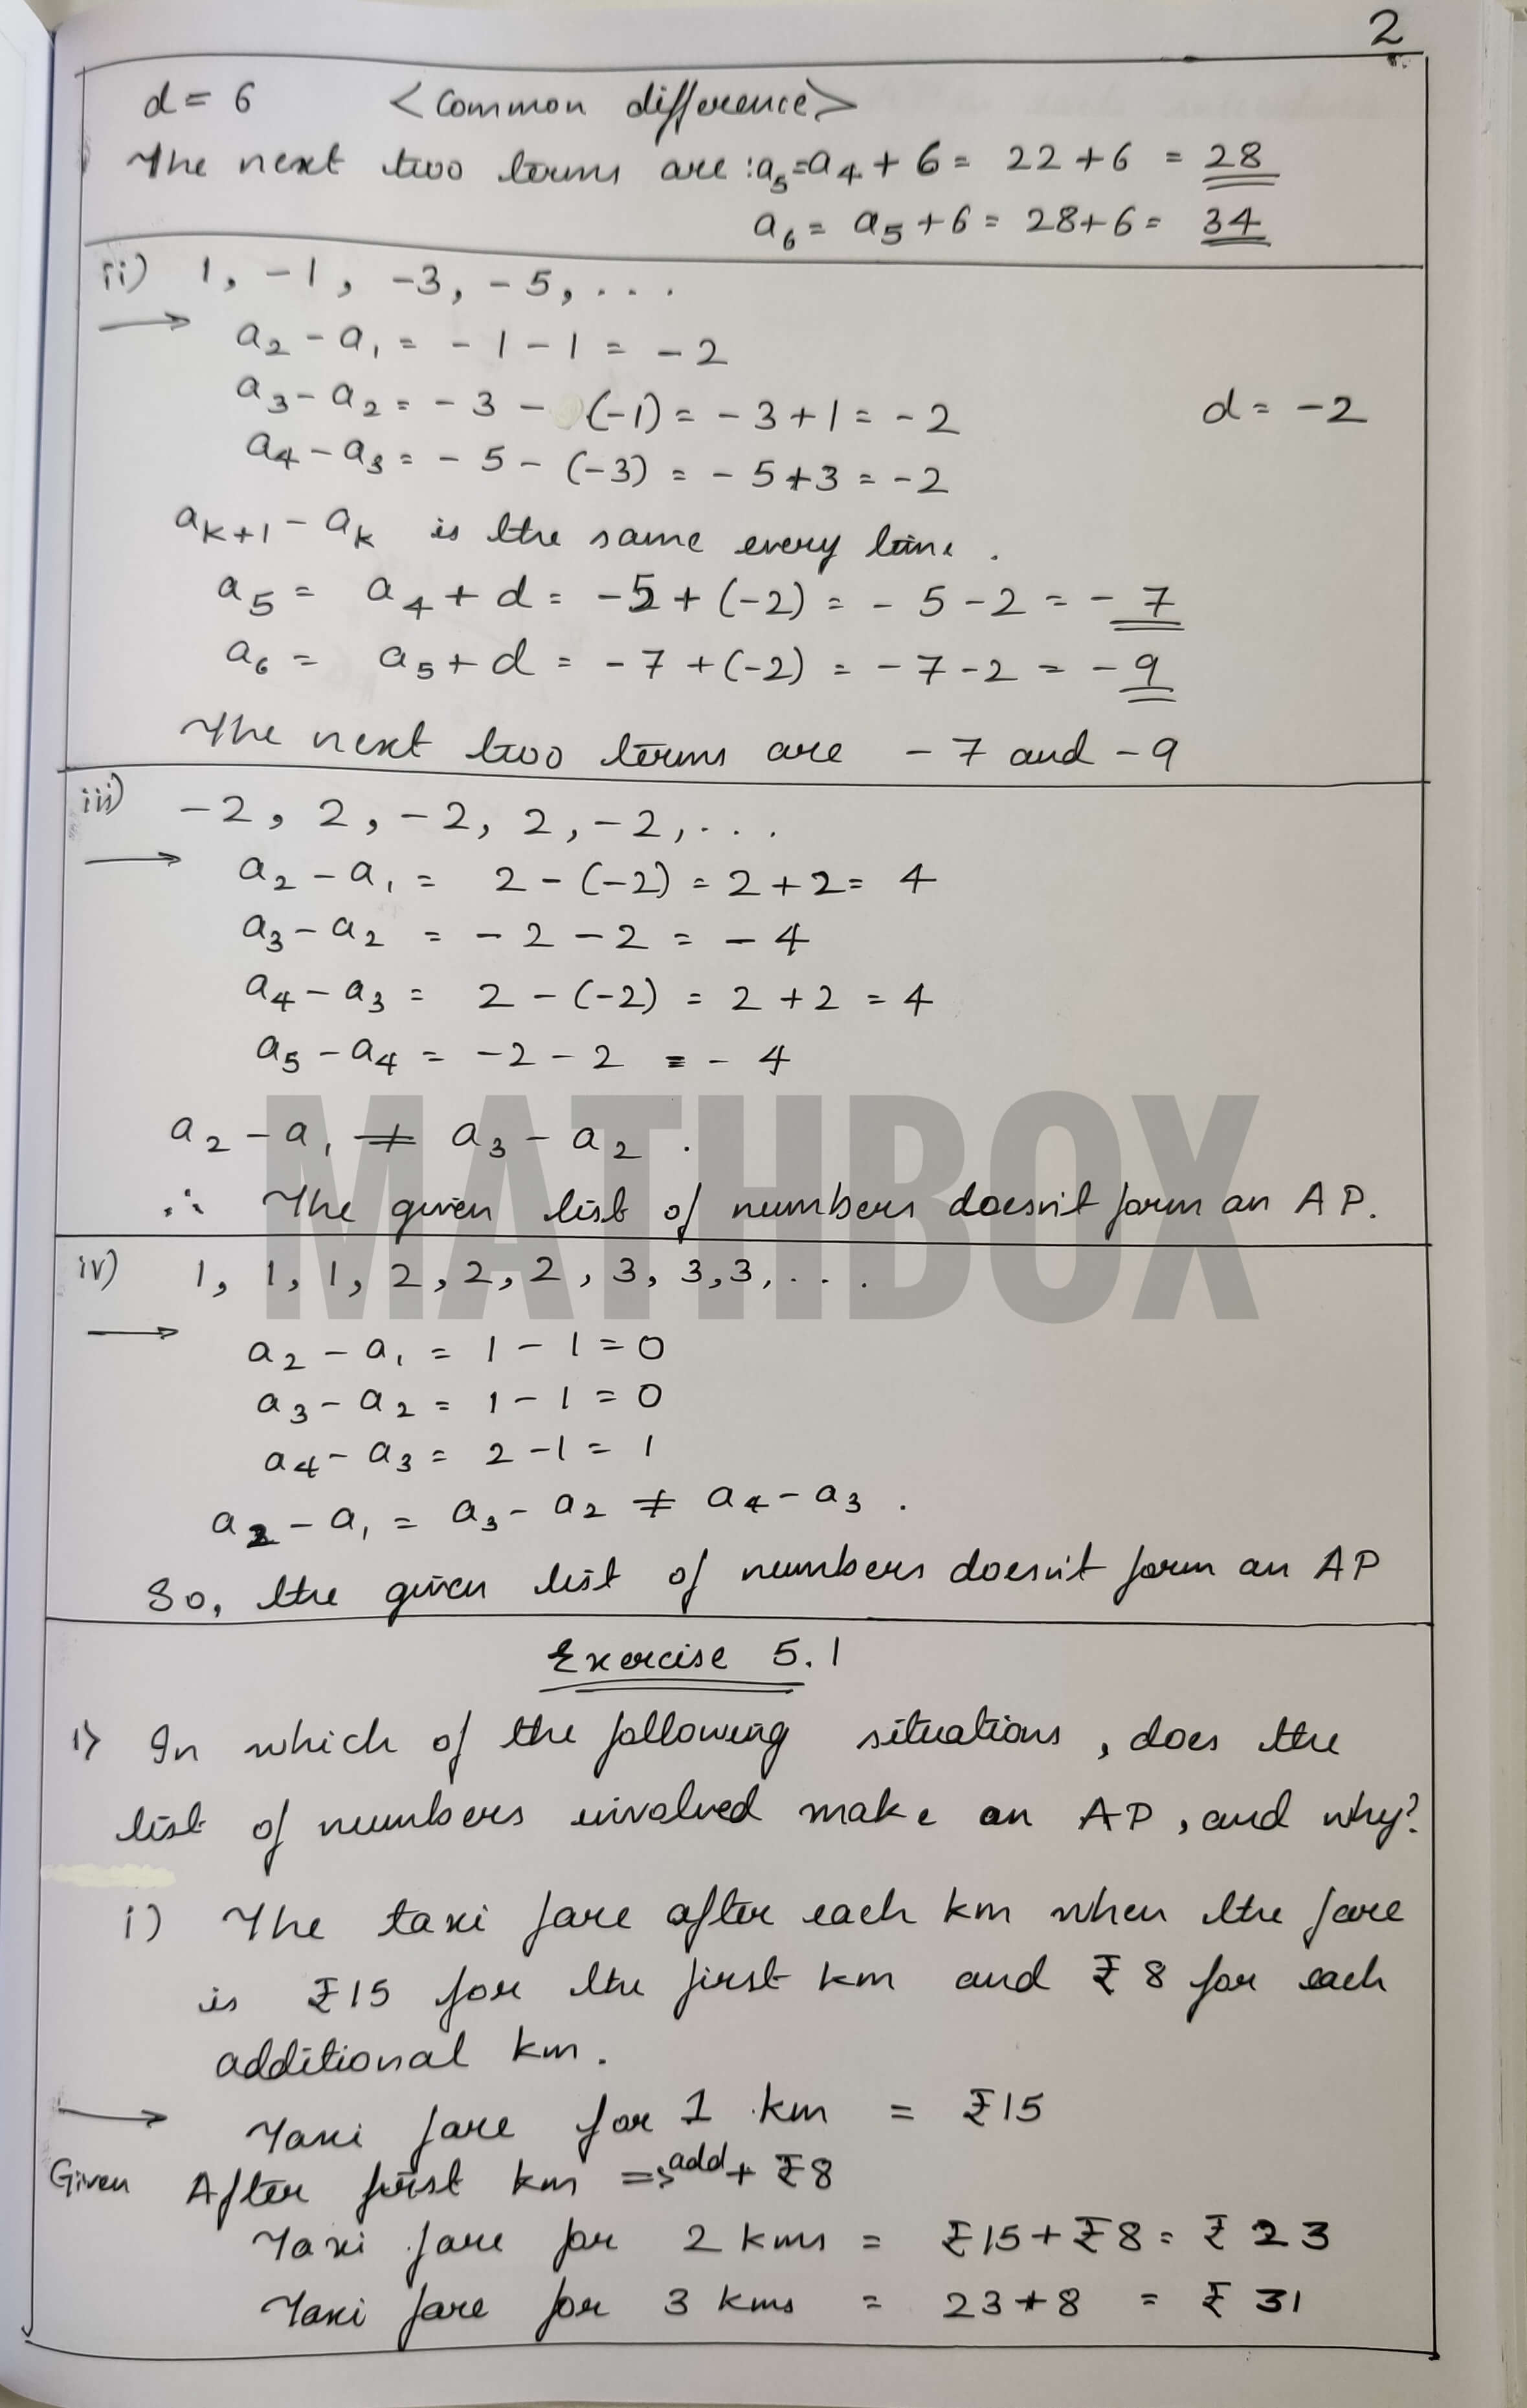 2
d = 6 <Common difference>
The next two terms are : a₅ = a₄ + 6 = 22 + 6 = 28
a₆ = a₅ + 6 = 28 + 6 = 34
ii) 1, -1, -3, -5, ...
→ a₂ - a₁ = -1 - 1 = -2
a₃ - a₂ = -3 - (-1) = -3 + 1 = -2 d = -2
a₄ - a₃ = -5 - (-3) = -5 + 3 = -2
aₖ₊₁ - aₖ is the same every time.
a₅ = a₄ + d = -5 + (-2) = -5 - 2 = -7
a₆ = a₅ + d = -7 + (-2) = -7 - 2 = -9
The next two terms are -7 and -9
iii) -2, 2, -2, 2, -2, ...
→ a₂ - a₁ = 2 - (-2) = 2 + 2 = 4
a₃ - a₂ = -2 - 2 = -4
a₄ - a₃ = 2 - (-2) = 2 + 2 = 4
a₅ - a₄ = -2 - 2 = -4
a₂ - a₁ ≠ a₃ - a₂.
∴ The given list of numbers doesn't form an AP.
MATHBOX
iv) 1, 1, 1, 2, 2, 2, 3, 3, 3, ...
→ a₂ - a₁ = 1 - 1 = 0
a₃ - a₂ = 1 - 1 = 0
a₄ - a₃ = 2 - 1 = 1
a₂ - a₁ = a₃ - a₂ ≠ a₄ - a₃.
So, the given list of numbers doesn't form an AP
Exercise 5.1
1) In which of the following situations, does the
list of numbers involved make an AP, and why?
i) The taxi fare after each km when the fare
is ₹15 for the first km and ₹8 for each
additional km.
→ Taxi fare for 1 km = ₹15
Given After first km => add + ₹8
Taxi fare for 2 kms = ₹15 + ₹8 = ₹23
Taxi fare for 3 kms = 23 + 8 = ₹31